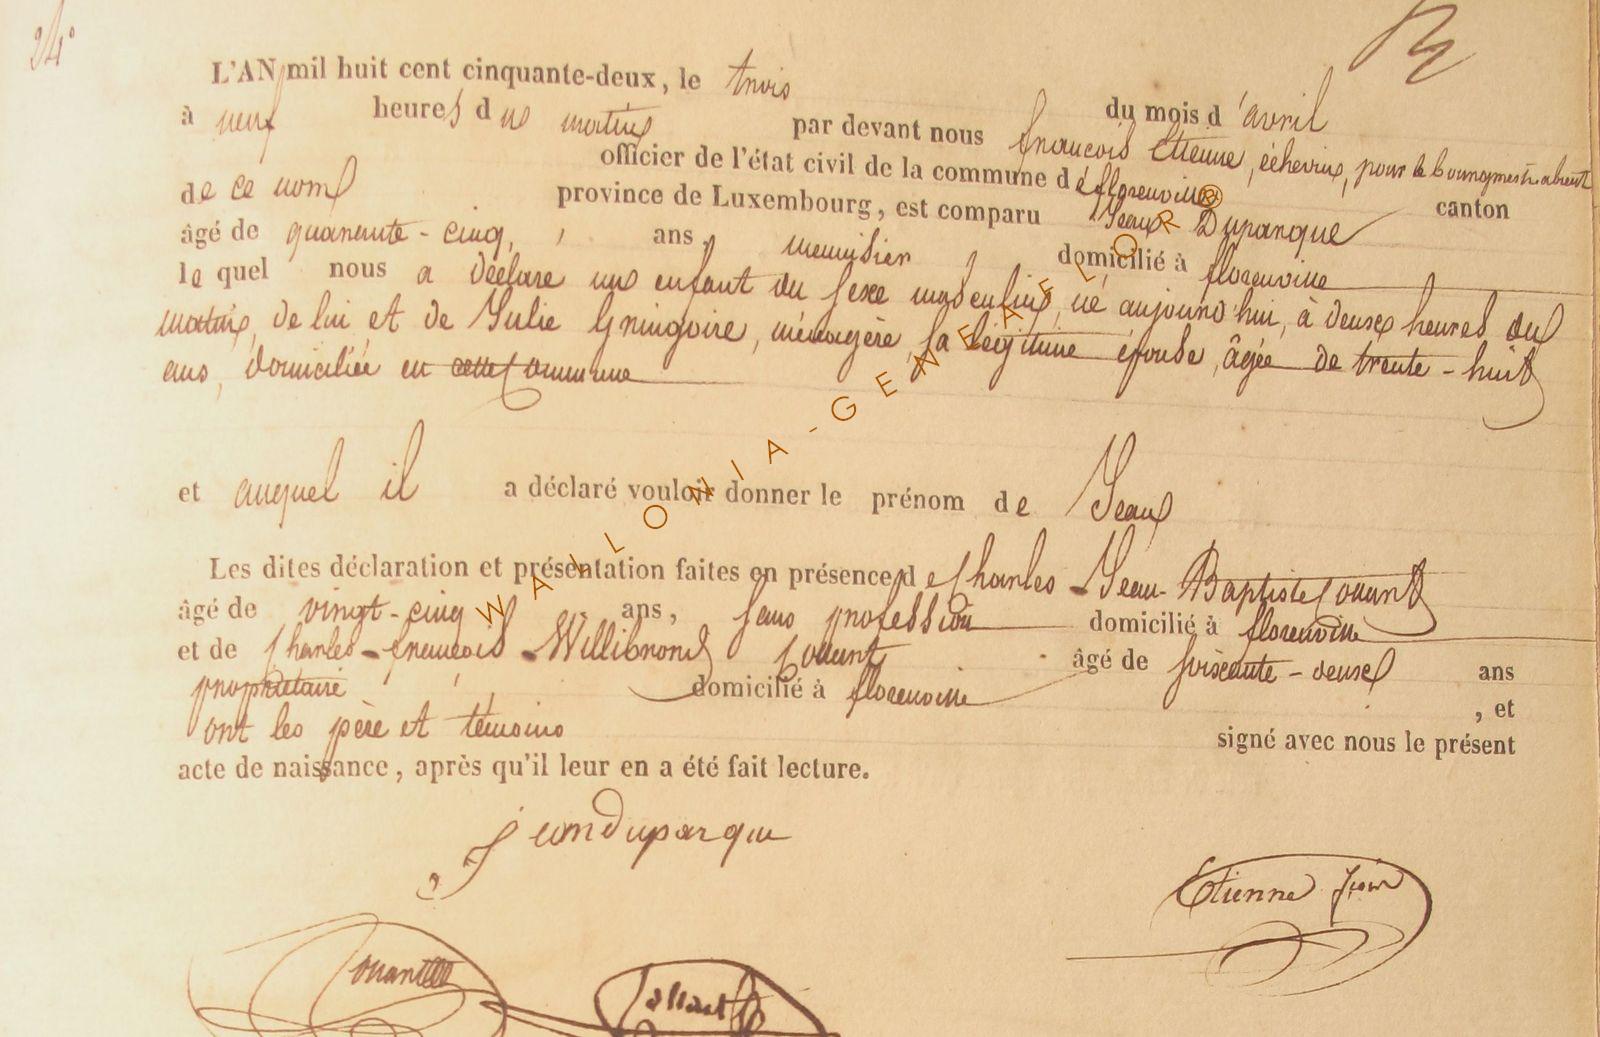 24°
L'AN mil huit cent cinquante-deux, le trois du mois d'avril
à neuf heures du matin par devant nous françois Etienne, échevin, pour le bourgmestre absent
officier de l'état civil de la commune de florenville
de ce nom province de Luxembourg, est comparu Jean Duparque canton
âgé de quarante-cinq, ans, menuisier, domicilié à florenville
lequel nous a déclaré un enfant du sexe masculin, né aujourd'hui, à deux heures du
matin, de lui et de Julie Gringoire, ménagère, sa légitime épouse, âgée de trente-huit
ans, domiciliée en cette Commune
et auquel il a déclaré vouloir donner le prénom de Jean
Les dites déclaration et présentation faites en présence de Charles-Jean-Baptiste
âgé de vingt-cinq ans, sans profession domicilié à florenville
et de Charles-françois-Willibrord âgé de soixante-deux ans
propriétaire domicilié à florenville , et
ont les père et témoins signé avec nous le présent
acte de naissance, après qu'il leur en a été fait lecture.
jean Duparque
Etienne
WALLONIA-GENEAFLOR®